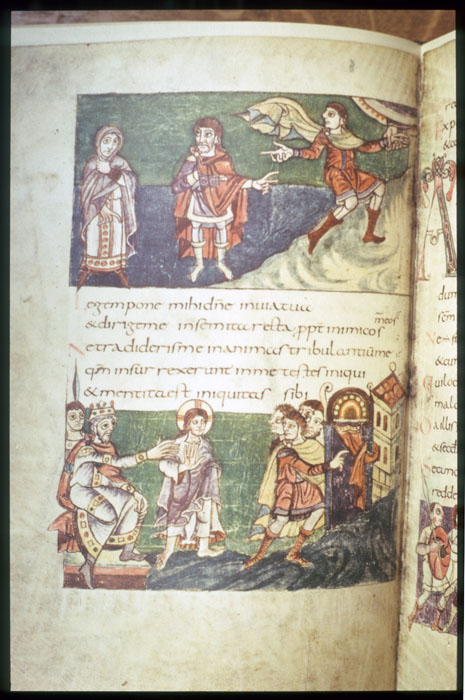 egem pone mihi dne inuiatua
&dirigeme insemita recta ppt inimicos meos
Netradiderisme inanimas tribulantiume
qm insurrexerunt inme testes iniqui
&mentitaest iniquitas sibi
dum
&cu
quiloc
malo
aillis
&sec
secun
redde